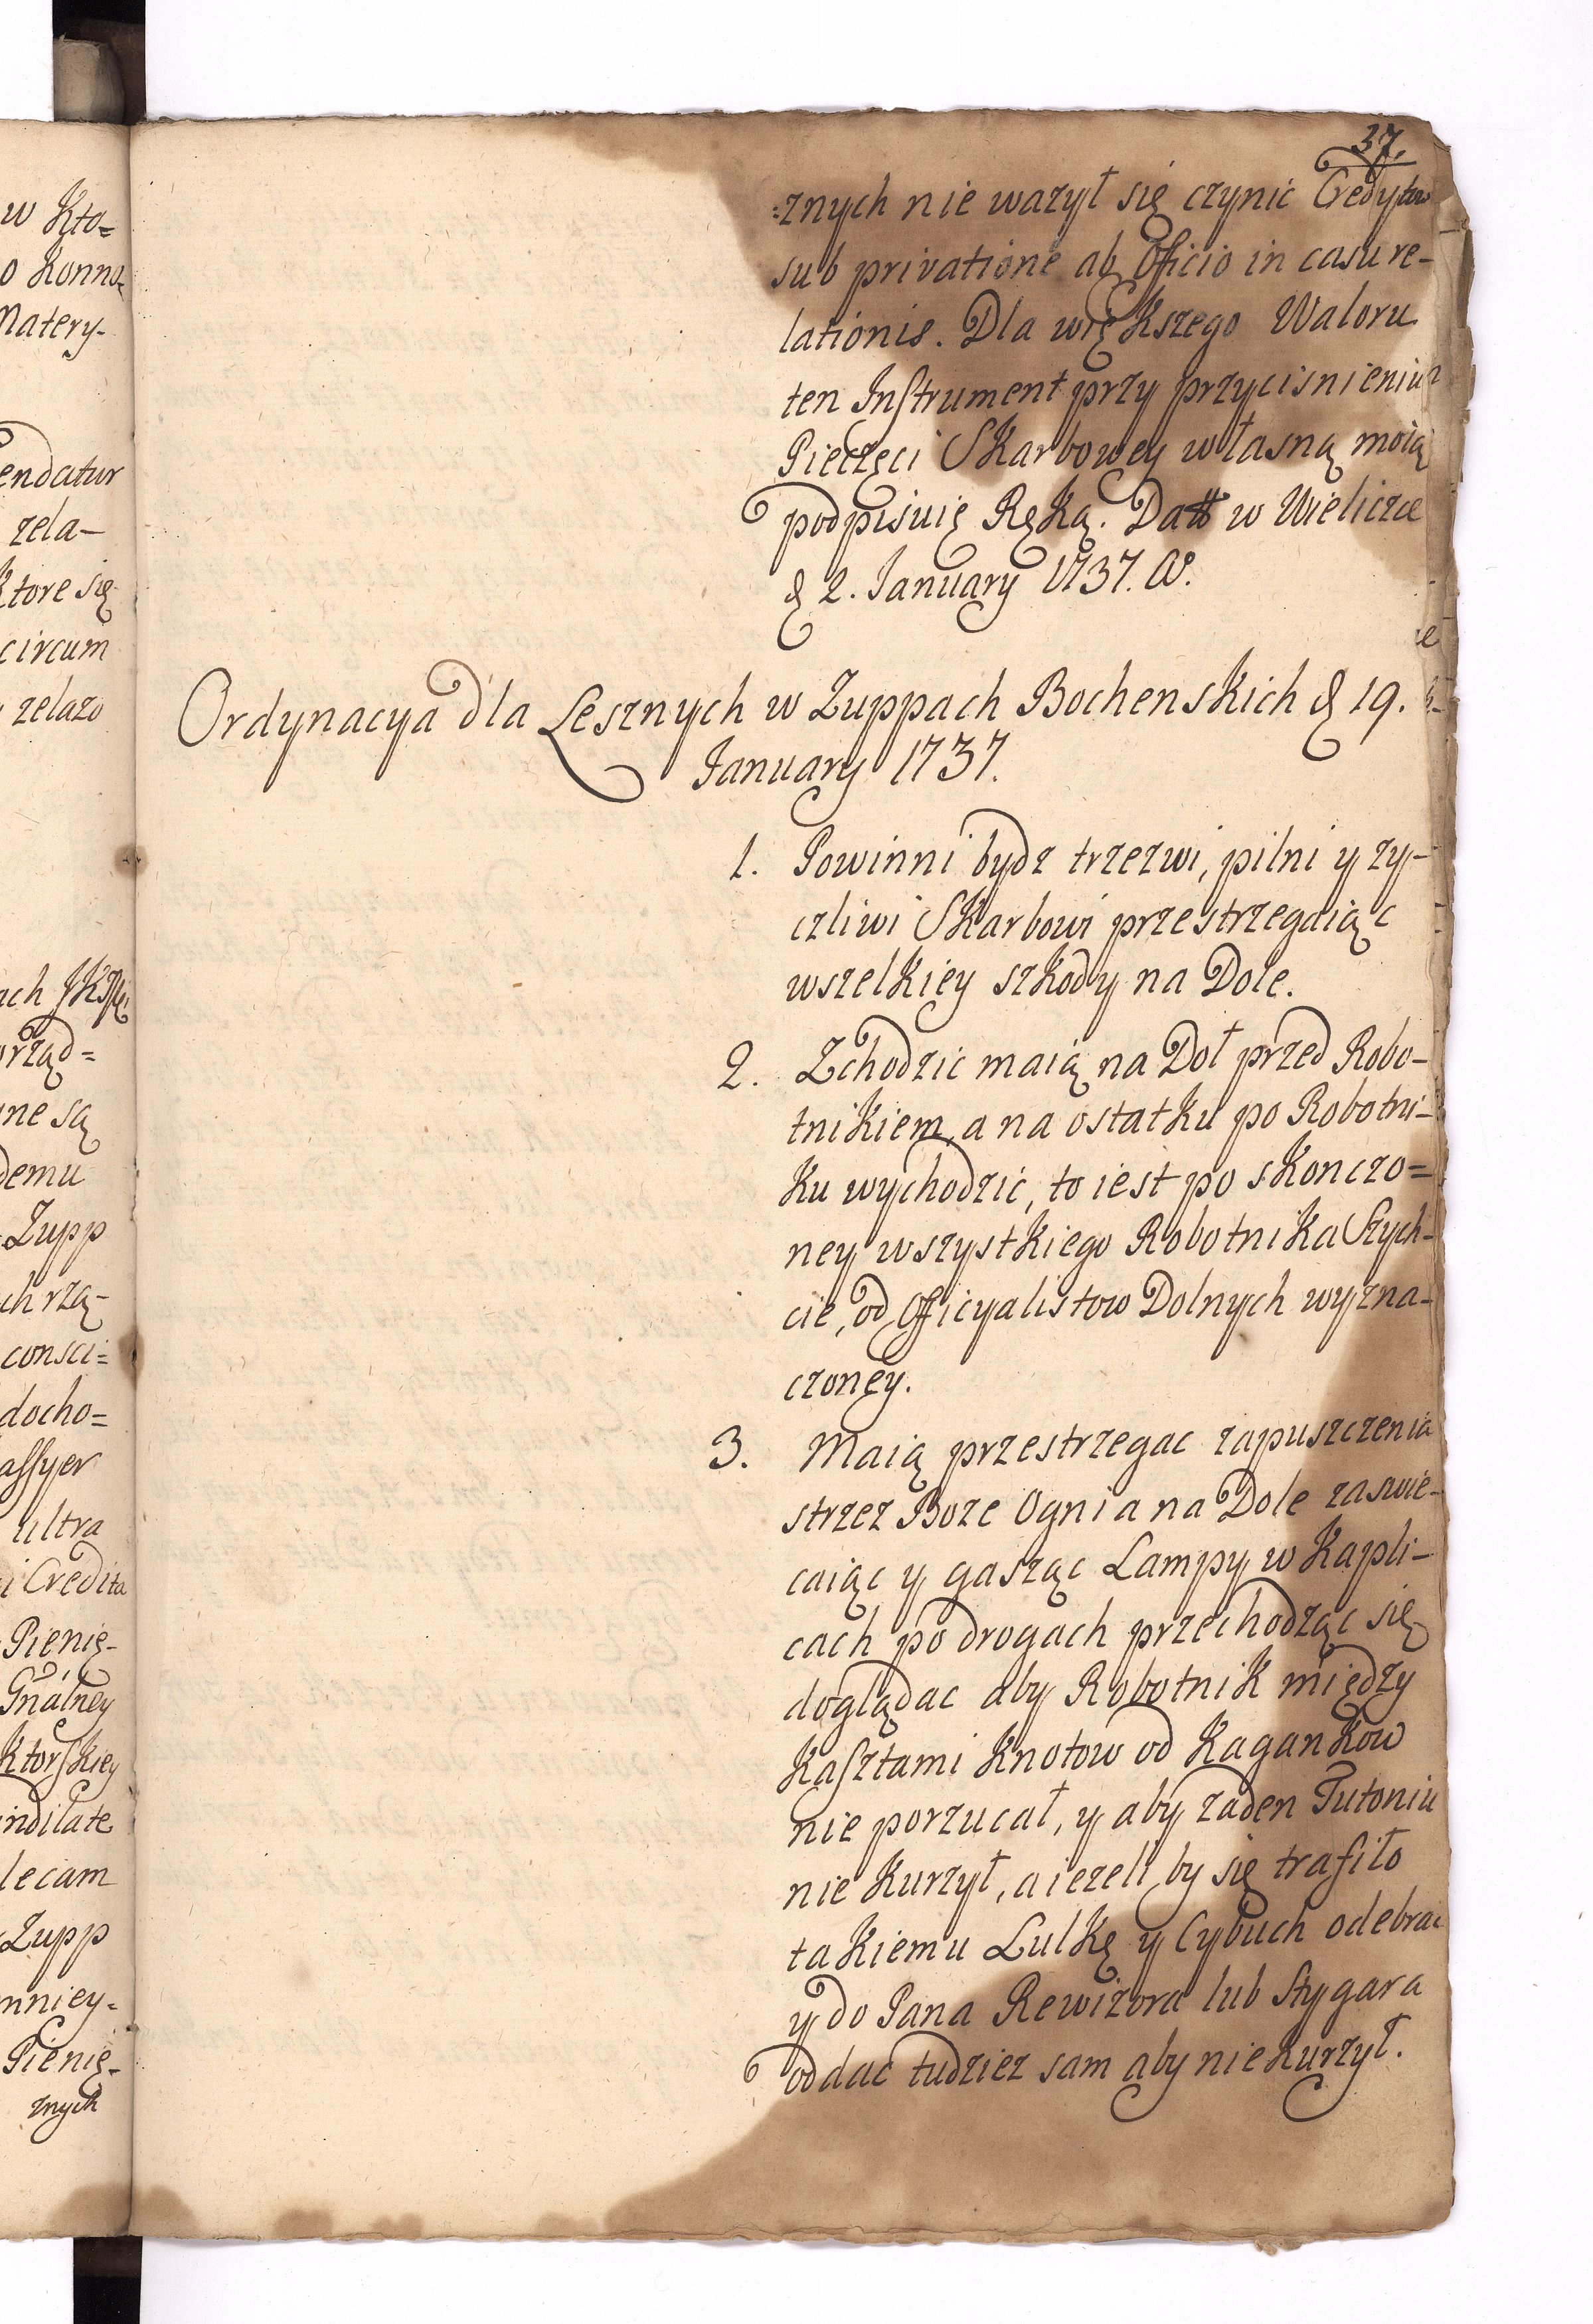 w Kto=
o Konna=
Matery-
endatur
zela-
ktore się
circum
zelazo
ach JKMci
orząd=
ne są
demu
Zupp
ch rzą-
consci=
docho=
assyer
ultra
i Credita
Pienię-
Gnalney
ktorskiey
indilate
lecam
Zupp
mniey-
Pienię-
znych
37.
=znych nie wazył się czynic Credytow
sub privatione ab Officio in casu re-
lationis. Dla większego Waloru
ten Instrument przy przycisnieniu
Pieczęci Skarbowey własną moią
podpisuię Ręką. Datt w Wieliczce
d 2. January 1737. Ao.
Ordynacya dla Lesznych w Zuppach Bochenskich d 19.
January 1737.
1. Powinni bydz trzezwi, pilni y zy-
czliwi Skarbowi przestrzegaiąc
wszelkiey szkody na Dole.
2. Zchodzic maią na Doł przed Robo-
tnikiem, a na ostatku po Robotni-
ku wychodzic, to iest po skonczo=
ney wszystkiego Robotnika Szych-
cie, od Officyalistow Dolnych wyzna-
czoney.
3. Maią przestrzegac zapuszczenia
strzez Boze Ognia na Dole zaswie-
caiąc y gasząc Lampy w Kapli-
cach po drogach przechodząc się
doglądac aby Robotnik między
Kasztami Knotow od Kagankow
nie porzucał, y aby zaden Tutoniu
nie Kurzył, a iezeli by się trafiło
takiemu Lulkę y Cybuch odebrac
y do Pana Rewizora lub Stygara
oddac tudziez sam aby nie Kurzył.